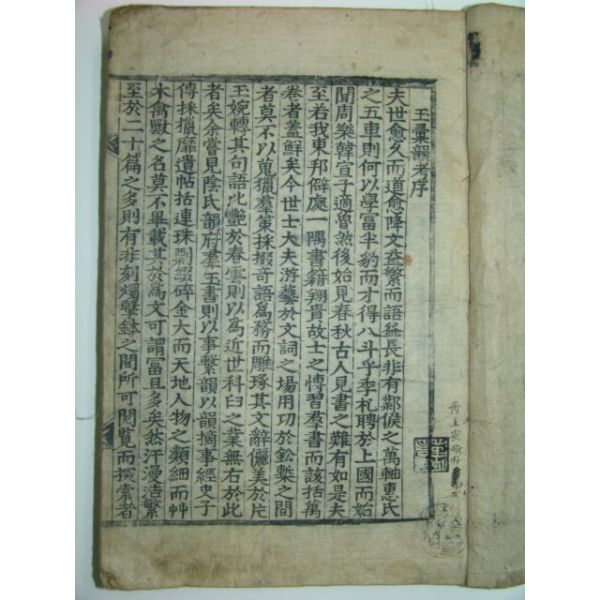 玉彙韻考序
夫世愈久而道愈降文益繁而語益長非有鄴侯之萬軸惠氏
之五車則何以學富半豹而才得八斗乎季札聘於上國而始
聞周樂韓宣子適魯然後始見春秋古人見書之難有如是夫
至若我東邦僻處一隅書籍翔貴故士之博習羣書而該括萬
卷者蓋鮮矣今世士大夫游藝於文詞之場用功於鉛槧之間
者莫不以蒐獵羣策採掇奇語爲務而雕琢其文辭儷美於片
玉婉轉其句語比艷於春雲則以爲近世科臼之業無右於此
者矣余嘗見陰氏韻府羣玉書則以事繫韻以韻摘事經史子
傳採獵靡遺帖括連珠剽綴碎金大而天地人物之類細而艸
木禽獸之名莫不畢載其於爲文可謂富且多矣然汗漫浩繁
至於二十篇之多則有非刻燭擊鉢之間所可閱覽而探索者